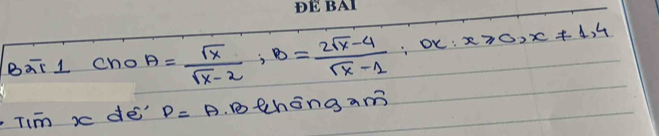 ĐỀ BÀI
Bài 1 Cho A = \frac{\sqrt{x}}{\sqrt{x}-2} ; B = \frac{2\sqrt{x}-4}{\sqrt{x}-1} ; ĐK : x ≥ 0, x ≠ 1,4
. Tìm x để P = A.B không âm